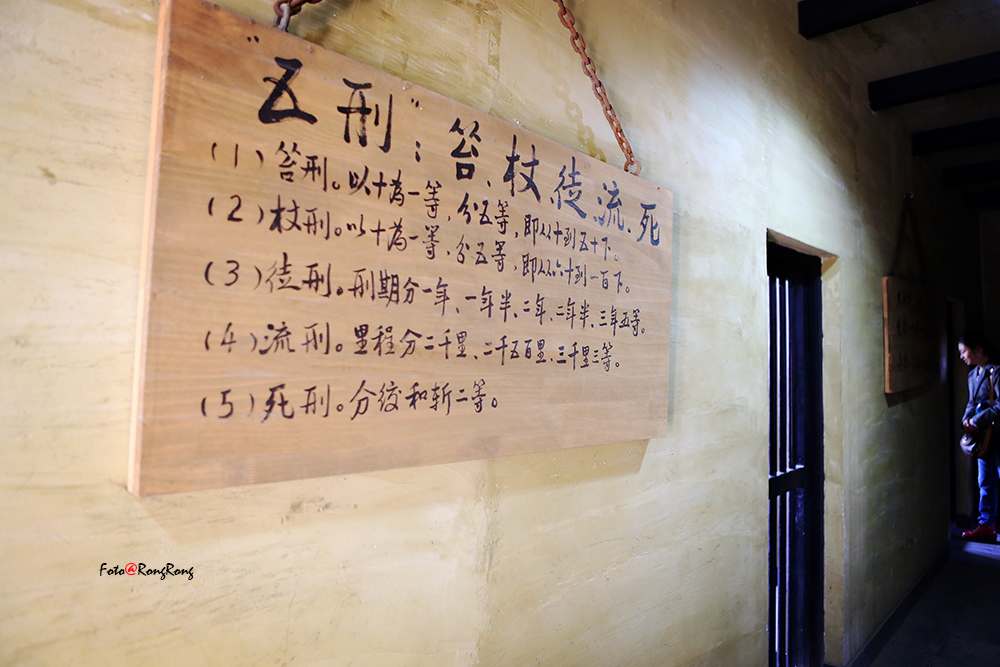 "五刑"：笞、杖、徒、流、死
(1)笞刑。以十为一等，分五等，即从十到五十下。
(2)杖刑。以十为一等、分五等，即从六十到一百下。
(3)徒刑。刑期分一年、一年半、二年、二年半、三年五等。
(4)流刑。里程分二千里、二千五百里、三千里三等。
(5)死刑。分绞和斩二等。
Foto@RongRong